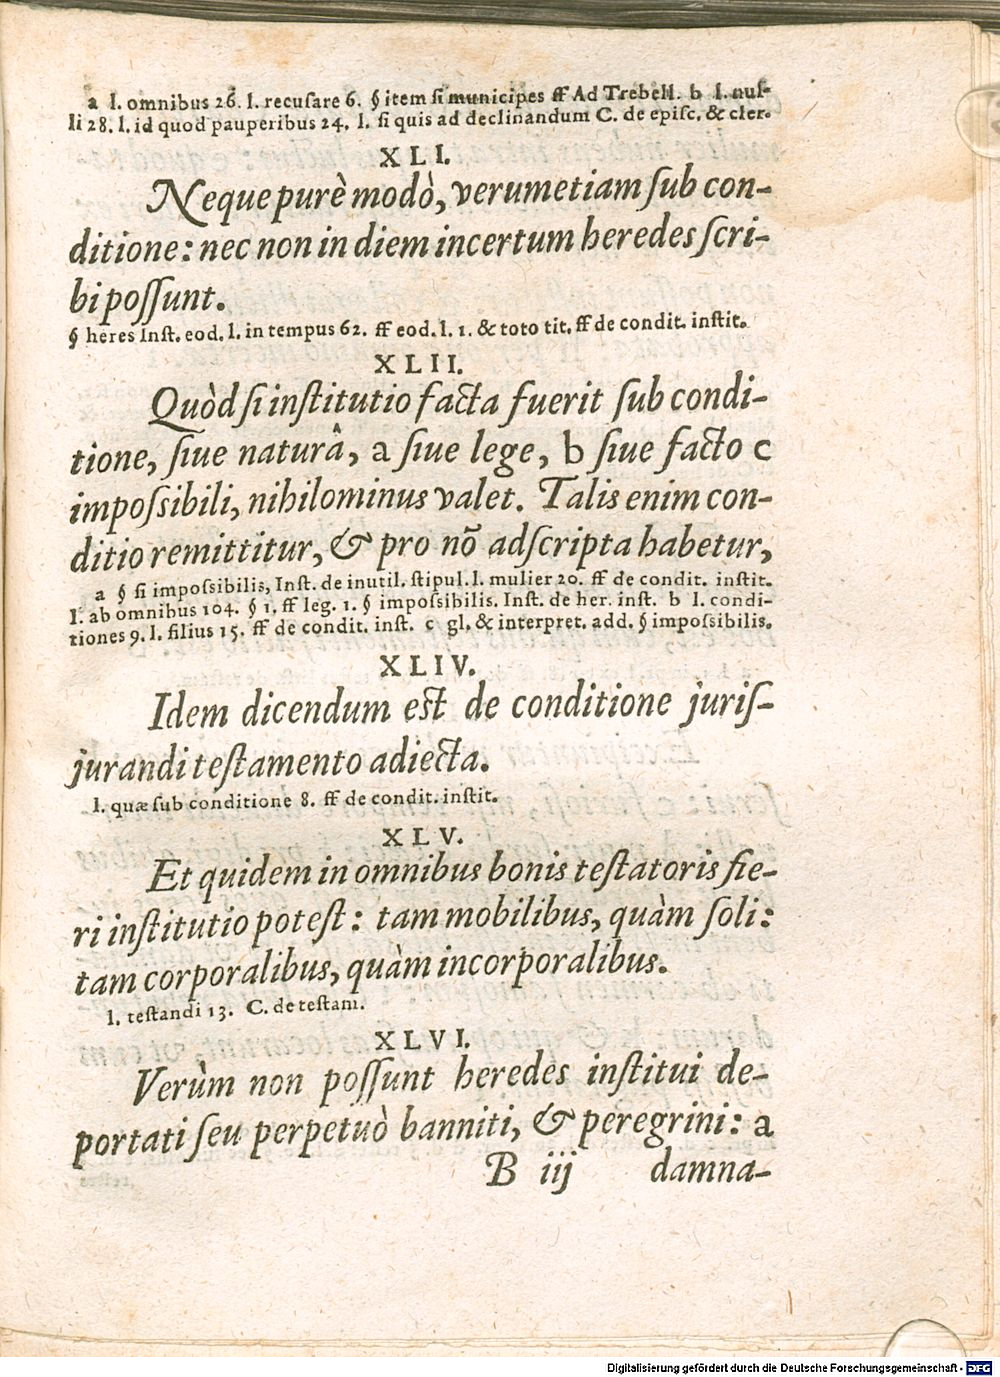 a l. omnibus 26. l. recuſare 6. § item ſi municipes ff Ad Trebell. b l. nul-
li 28. l. id quod pauperibus 24. l. ſi quis ad declinandum C. de epiſc. & cler.
XLI.
Neque purè modò, verumetiam ſub con-
ditione: nec non in diem incertum heredes ſcri-
bi poſſunt.
§ heres Inſt. eod. l. in tempus 62. ff eod. l. 1. & toto tit. ff de condit. inſtit.
XLII.
Quòd ſi inſtitutio facta fuerit ſub condi-
tione, ſiue naturâ, a ſiue lege, b ſiue facto c
impoſsibili, nihilominus valet. Talis enim con-
ditio remittitur, & pro nõ adſcripta habetur,
a § ſi impoſsibilis, Inſt. de inutil. ſtipul. l. mulier 20. ff de condit. inſtit.
l. ab omnibus 104. § 1. ff leg. 1. § impoſsibilis. Inſt. de her. inſt. b l. condi-
tiones 9. l. filius 15. ff de condit. inſt. c gl. & interpret. add. § impoſsibilis.
XLIV.
Idem dicendum eſt de conditione juriſ-
jurandi teſtamento adiecta.
l. quæ ſub conditione 8. ff de condit. inſtit.
XLV.
Et quidem in omnibus bonis teſtatoris fie-
ri inſtitutio poteſt: tam mobilibus, quàm ſoli:
tam corporalibus, quàm incorporalibus.
l. teſtandi 13. C. de teſtam.
XLVI.
Verùm non poſſunt heredes inſtitui de-
portati ſeu perpetuò banniti, & peregrini: a
B iij damna-
Digitalisierung gefördert durch die Deutsche Forschungsgemeinschaft - DFG